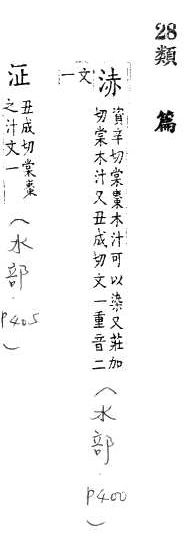 28類篇
文
一
浾
資辛切棠棗木汁可以染又莊加
切棠木汁又丑成切文一重音二
(水部.P400)
泟
丑成切棠棗
之汁文一
(水部.P405)